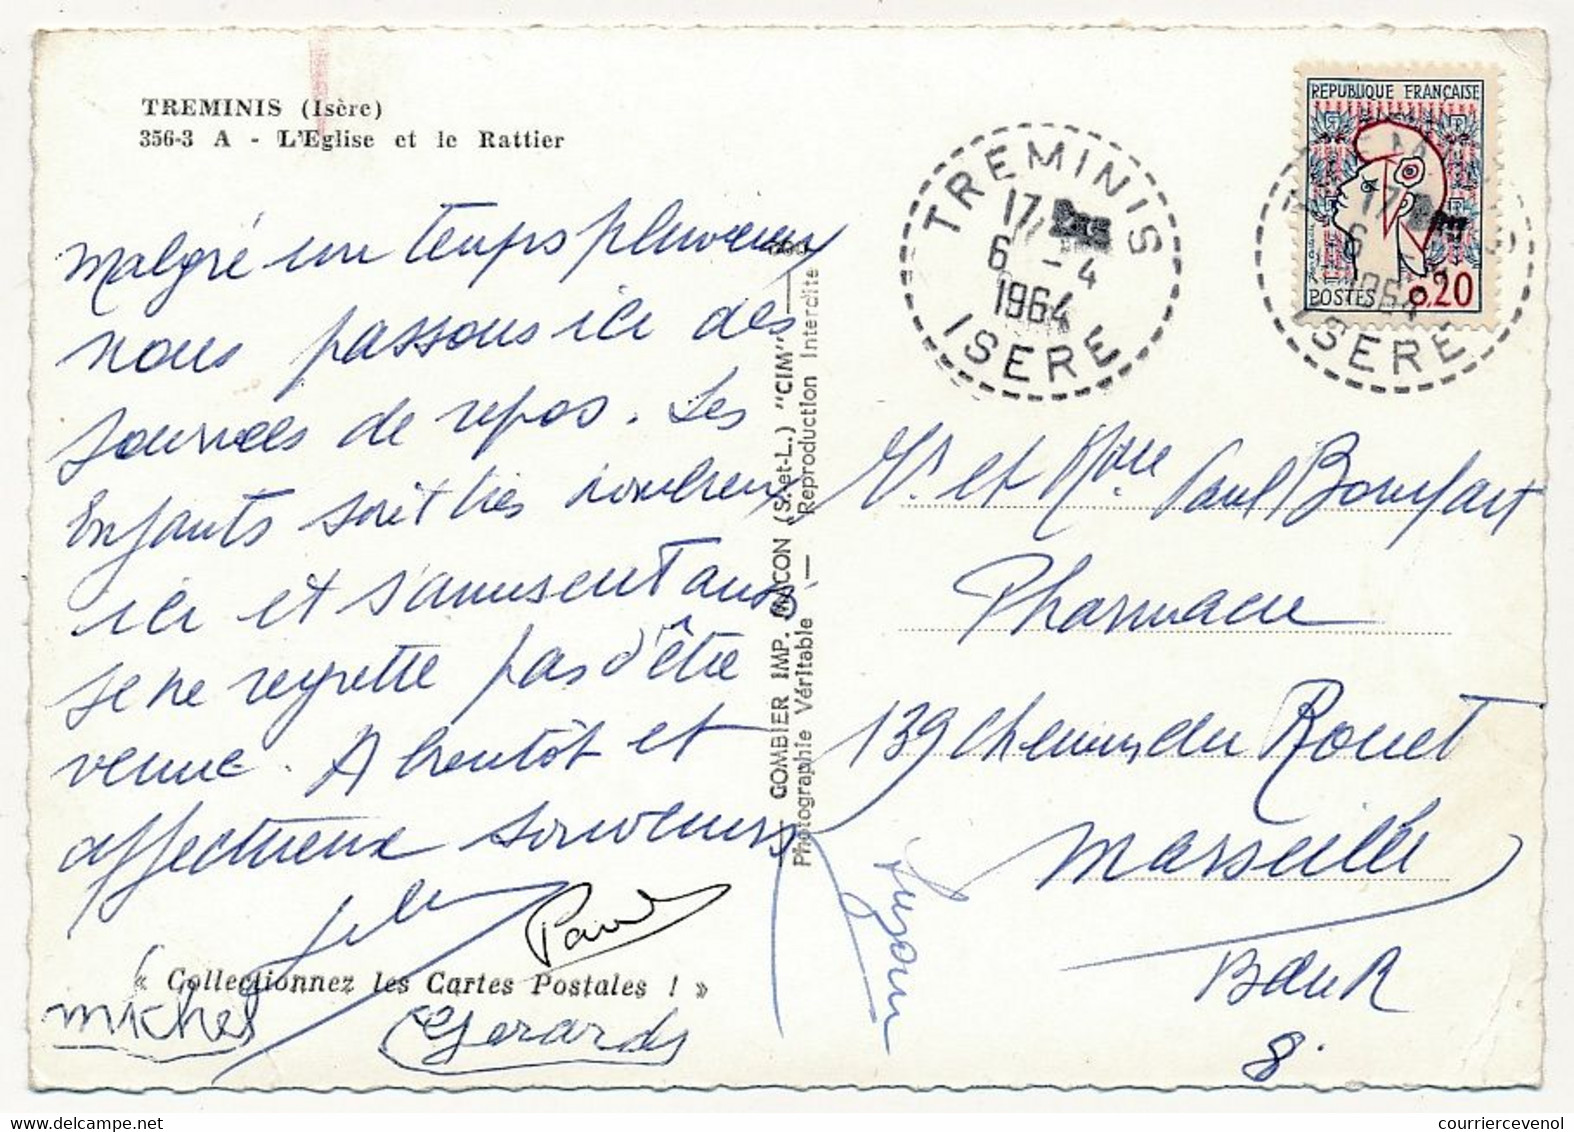 TREMINIS (Isère)
356-3 A - L'Eglise et le Rattier
malgré un temps pluvieux
nous passons ici des
journées de repos. Les
Enfants sont très nombreux
ici et s'amusent aussi
je ne regrette pas d'être
venue. A bientôt et
affectueux souvenirs
Paul
« Collectionnez les Cartes Postales ! »
Michel
Gerard
Suzon
GOMBIER IMP. MACON (S.-et-L.) "CIM"
Photographie Véritable — Reproduction Interdite
TREMINIS
17
6 - 4
1964
ISERE
REPUBLIQUE FRANÇAISE
POSTES 0,20
17
6
1964
ISERE
Mr et Mme Paul Bonifart
Pharmacie
139 Chemin du Rouet
Marseille
B du R
8.
courriercevenol
www.delcampe.net